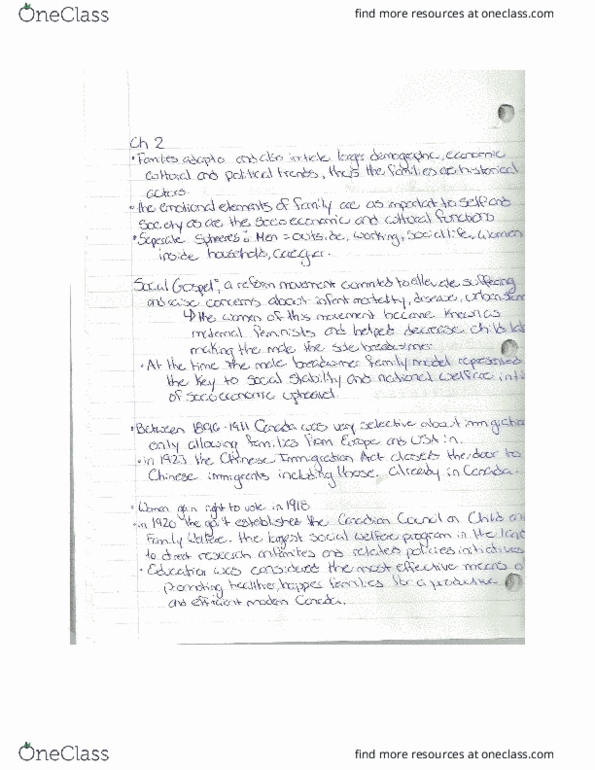 OneClass
find more resources at oneclass.com
Ch 2
• Families adapt to and also initiate larger demographic, economic
cultural and political trends, the families as historical
actors.
• the emotional elements of family are as important to self and
society as are the socioeconomic and cultural functions
• Seperate Spheres: Men = outside, working, social life, women
inside household,
Social Gospel", a reform movement commited to alleviate suffering
and raise concerns about infant mortality, disease, urban
↳ the women of this movement became known as
maternal feminists and helped decrease child
making the male the sole breadwinner.
• At the time the male breadwinner family model represented
the key to social stability and national welfare in
of socioeconomic upheaval.
• Between 1896-1911 Canada was very selective about
only allowing families from Europe and USA in.
• in 1923 the Chinese Immigration Act closed the door to
Chinese immigrants including those already in Canada.
• Women gain right to vote in 1918
• in 1920 the gov't established the Canadian Council on Child
Family Welfare. the largest social welfare program in the
to direct research and related policies initiatives
• Education was considered the most effective means
promoting healthier, happier families for a productive
and efficient modern Canada.
OneClass
find more resources at oneclass.com